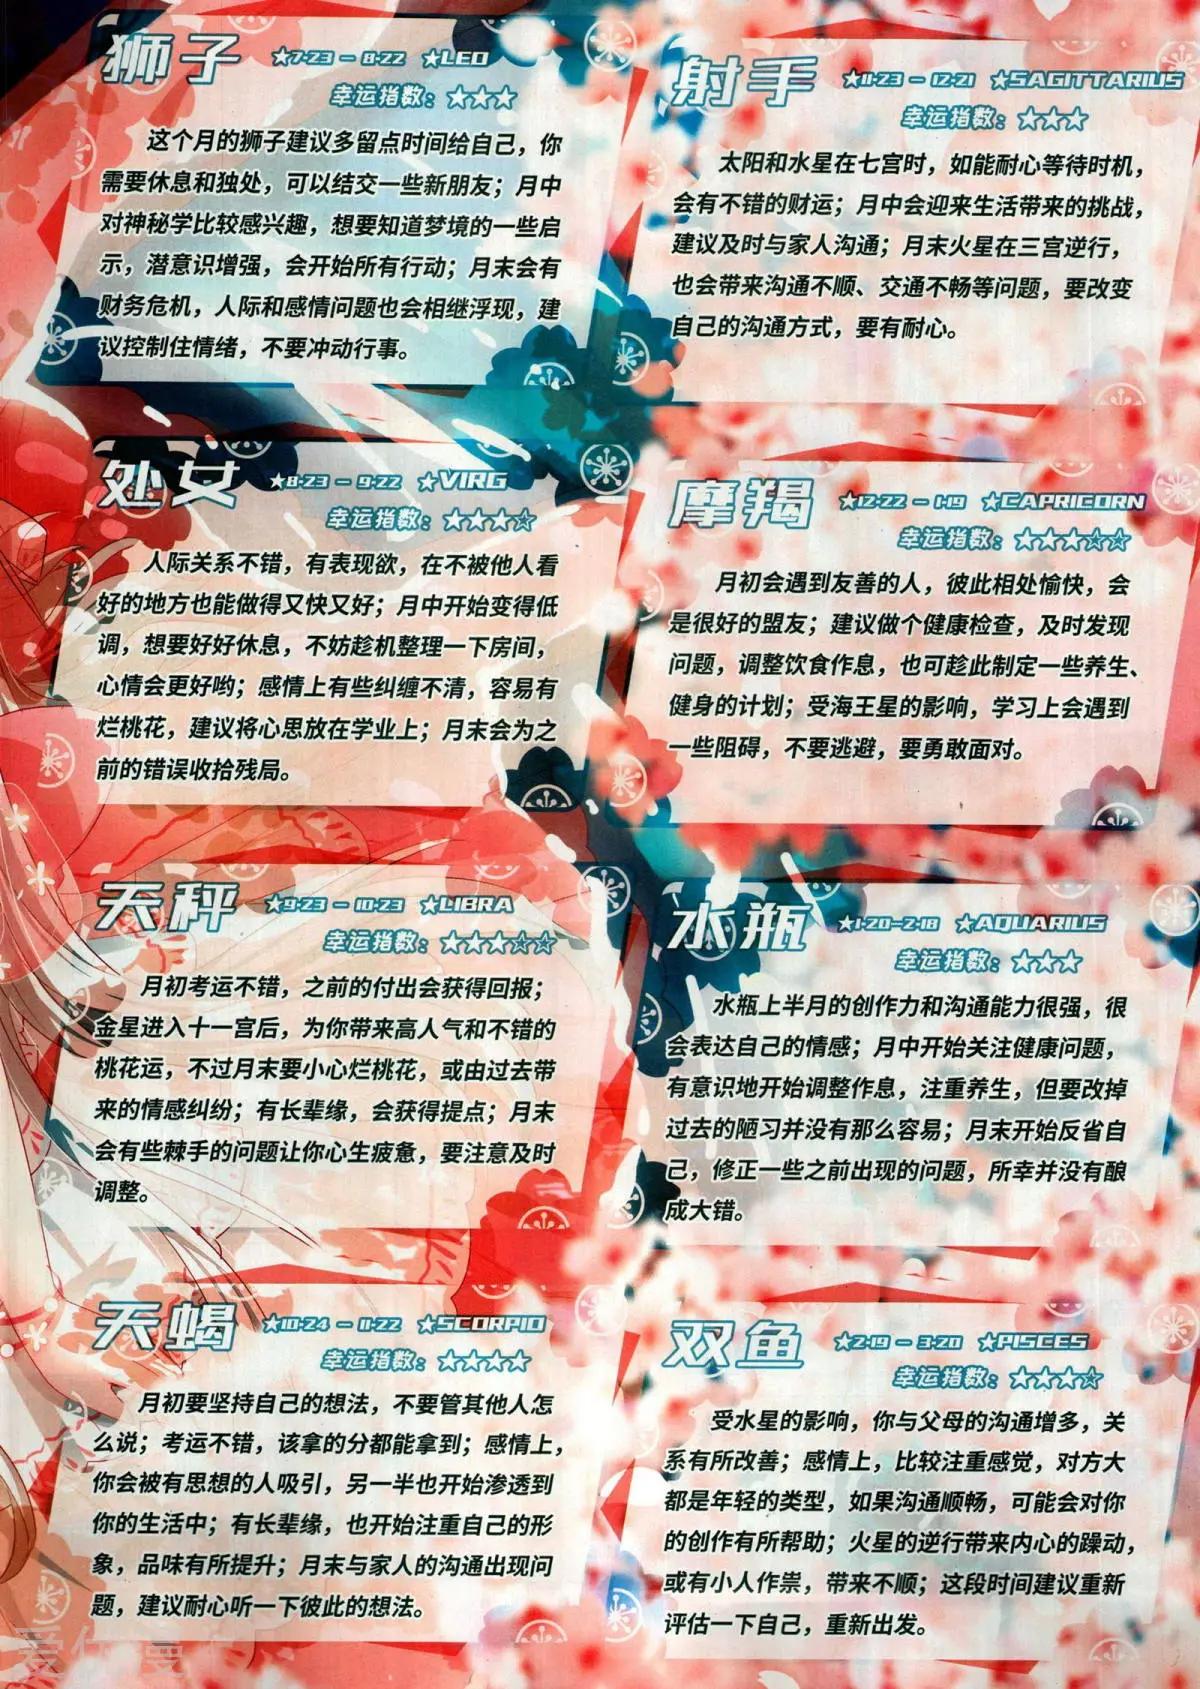 狮子 ★7·23 — 8·22 ★LEO
幸运指数：★★★
这个月的狮子建议多留点时间给自己，你
需要休息和独处，可以结交一些新朋友；月中
对神秘学比较感兴趣，想要知道梦境的一些启
示，潜意识增强，会开始所有行动；月末会有
财务危机，人际和感情问题也会相继浮现，建
议控制住情绪，不要冲动行事。
处女 ★8·23 — 9·22 ★VIRG
幸运指数：★★★☆
人际关系不错，有表现欲，在不被他人看
好的地方也能做得又快又好；月中开始变得低
调，想要好好休息，不妨趁机整理一下房间，
心情会更好哟；感情上有些纠缠不清，容易有
烂桃花，建议将心思放在学业上；月末会为之
前的错误收拾残局。
天秤 ★9·23 — 10·23 ★LIBRA
幸运指数：★★★☆☆
月初考运不错，之前的付出会获得回报；
金星进入十一宫后，为你带来高人气和不错的
桃花运，不过月末要小心烂桃花，或由过去带
来的情感纠纷；有长辈缘，会获得提点；月末
会有些棘手的问题让你心生疲惫，要注意及时
调整。
天蝎 ★10·24 — 11·22 ★SCORPIO
幸运指数：★★★★
月初要坚持自己的想法，不要管其他人怎
么说；考运不错，该拿的分都能拿到；感情上，
你会被有思想的人吸引，另一半也开始渗透到
你的生活中；有长辈缘，也开始注重自己的形
象，品味有所提升；月末与家人的沟通出现问
题，建议耐心听一下彼此的想法。
射手 ★11·23 — 12·21 ★SAGITTARIUS
幸运指数：★★★
太阳和水星在七宫时，如能耐心等待时机，
会有不错的财运；月中会迎来生活带来的挑战，
建议及时与家人沟通；月末火星在三宫逆行，
也会带来沟通不顺、交通不畅等问题，要改变
自己的沟通方式，要有耐心。
摩羯 ★12·22 — 1·19 ★CAPRICORN
幸运指数：★★★☆☆
月初会遇到友善的人，彼此相处愉快，会
是很好的盟友；建议做个健康检查，及时发现
问题，调整饮食作息，也可趁此制定一些养生、
健身的计划；受海王星的影响，学习上会遇到
一些阻碍，不要逃避，要勇敢面对。
水瓶 ★1·20—2·18 ★AQUARIUS
幸运指数：★★★
水瓶上半月的创作力和沟通能力很强，很
会表达自己的情感；月中开始关注健康问题，
有意识地开始调整作息，注重养生，但要改掉
过去的陋习并没有那么容易；月末开始反省自
己，修正一些之前出现的问题，所幸并没有酿
成大错。
双鱼 ★2·19 — 3·20 ★PISCES
幸运指数：★★★☆
受水星的影响，你与父母的沟通增多，关
系有所改善；感情上，比较注重感觉，对方大
都是年轻的类型，如果沟通顺畅，可能会对你
的创作有所帮助；火星的逆行带来内心的躁动，
或有小人作祟，带来不顺；这段时间建议重新
评估一下自己，重新出发。